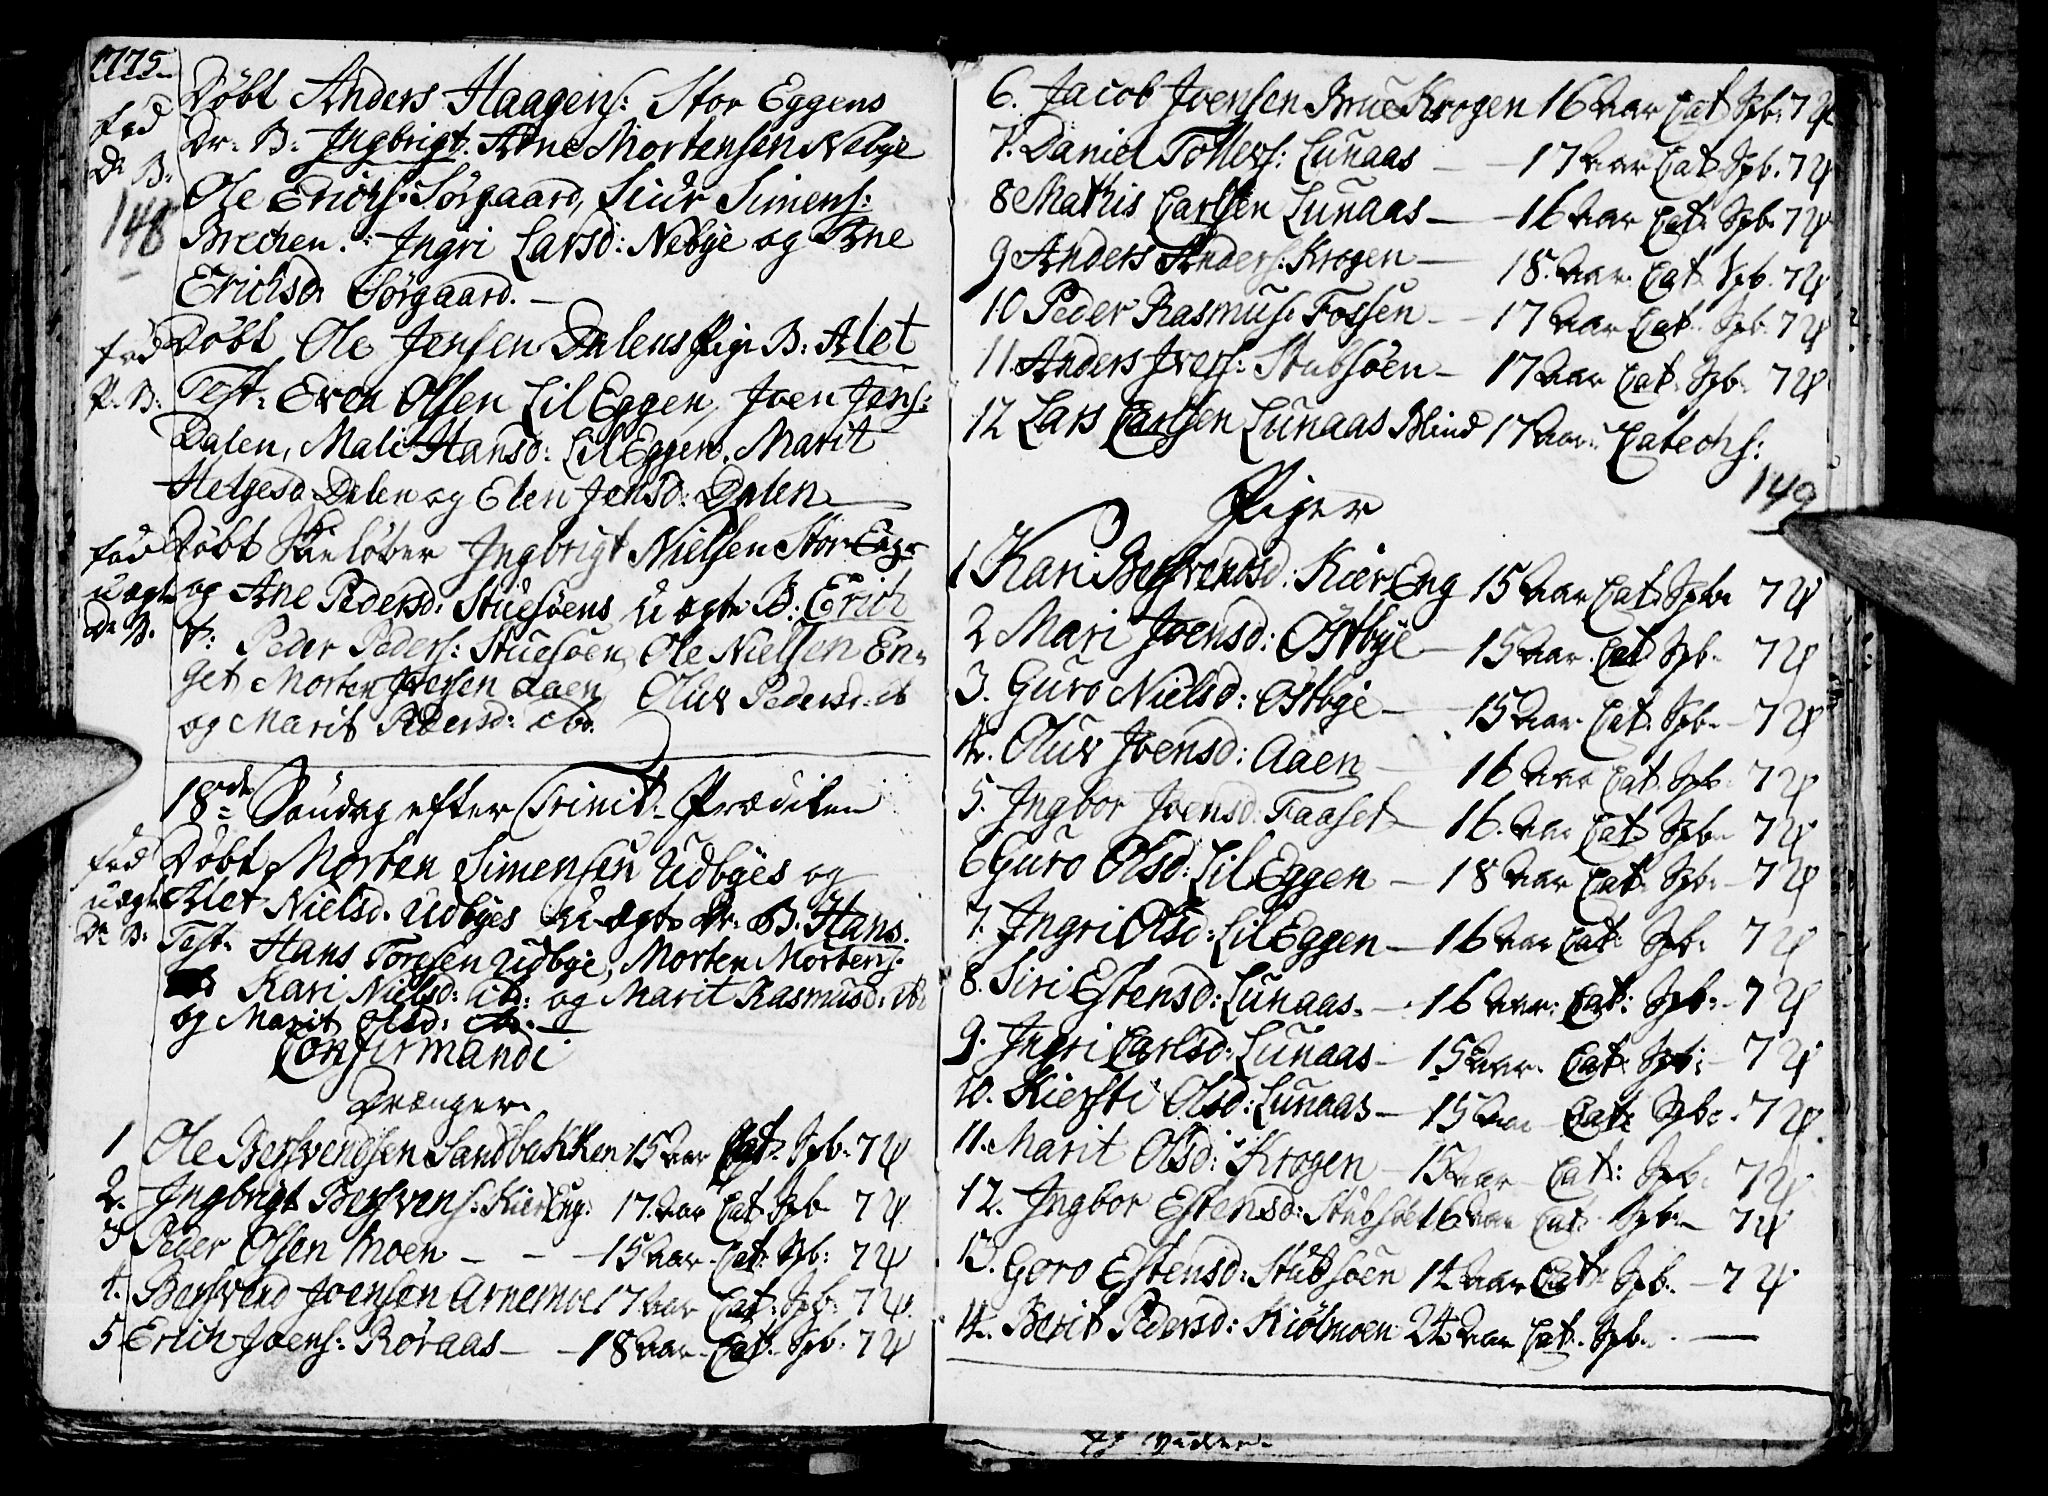 1775
Døbt Anders Haagens: Stor Eggens
fød
Dr. B: Ingbrigt. Ane Mortensen Nebye
Dr B:
Ole Erichs: Sørgaard, Siur Simens:
148
Brechen. Ingri Larsd: Nebye og Ane
Erichsd Sørgaard. —
fød Døbt Ole Jensen Dalens Pige B: Alet
P. B: Test: Even Olsen Lil Eggen, Joen Jens:
Dalen, Mali Hansd: Lil Eggen. Marit
Helgesd Dalen og Elen Jensd: Dalen
fød Døbt Ingbrigt Nielsen Stor Egg.
uægte og Ane Pedersd: Stuesøens uægte B: Erich
Dr B. T: Peder Peders: Stuesøen, Ole Nielsen En-
get Morten Iversen Aaen, Oluv Pedersd: ib
og Marit Pedersd: ibd.
18de Søndag efter Trinit. Prædiken
fød Døbt Morten Simensen Udbyes og
uægte Alet Nielsd. Udbyes uægte Dr. B. Hans.
Dr B: Test. Hans Torgsen Udbye, Morten Mortens:
Kari Nielsd: ib: og Marit Rasmusd: ib
og Marit Olsd: ib. —
Confirmandi
Drænger.
1 Ole Besvendsen Sandbakken 15 Aar Cat. Spb. 7 Ψ
2. Ingbrigt Besvens: Kier Eng. 17. Aar Cat Spb 7 Ψ
3 Peder Olsen Moen — — — 15 Aar. Cat: Spb: 7 Ψ
4. Besvend Joensen Arnemoe 17 Aar Cat: Spb: 7 Ψ
5 Erich Joens: Røraas — — 18 Aar. Cat. Spb. 7 Ψ
6. Jacob Joensen Brue Krogen 16 Aar Cat Spb. 7 Ψ
7. Daniel Tollefs: Lunaas — — 17 Aar Cat Spb. 7 Ψ
8 Mathis Carlsen Lunaas — — 16 Aar Cat. Spb. 7 Ψ
9 Anders Anders: Krogen — 18. Aar. Cat Spb. 7 Ψ
10 Peder Rasmus: Fossen — 17 Aar Cat. Spb. 7 Ψ
11. Anders Ivers: Stubsøen — 17 Aar Cat. Spb. 7 Ψ
12 Lars Carlsen Lunaas Blind 17 Aar. Catechs:
149
Piger
1 Kari Besvendsd: Kier Eng 15 Aar Cat. Spb 7 Ψ
2 Mari Joensd: Østbye — 15 Aar. Cat Spb. 7 Ψ
3. Guro Nielsd: Østbye — 15 Aar. Cat. Spb. — 7 Ψ
4. Oluv Joensd: Aaen — 16 Aar Cat. Spb. 7 Ψ
5. Ingbor Joensd: Faaset — 16. Aar Cat. Spb. 7 Ψ
6 Guro Olsd: Lil Eggen — 18 Aar Cat. Spb. — 7 Ψ
7. Ingri Olsd: Lil Eggen — 16 Aar Cat: Spb. 7 Ψ
8. Siri Estensd: Lunaas. — 16 Aar: Cat: Spb. — 7 Ψ
9. Ingri Carlsd: Lunaas — 15 Aar. Cat: Spb: — 7 Ψ
10. Kiersti Olsd: Lunaas — 15 Aar Cat: Spb: . 7 Ψ
11. Marit Olsd: Krogen — 15 Aar — Cat: Spb. 7 Ψ
12. Ingbor Estensd: Stubsøe 16 Aar Cat. Spb. — 7 Ψ
13. Goro Estensd: Stubsøen 14 Aar Cat. Spb. — 7 Ψ
14. Berit Pedersd: Kiølmoen 24 Aar Cat. Spb. . —